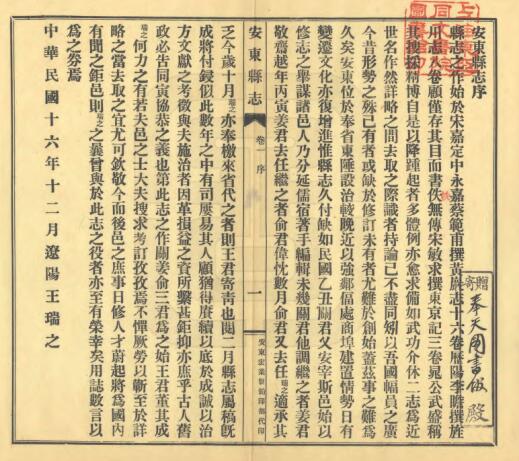 安東縣志序
縣志之作始於宋嘉定中永嘉蔡範甫撰黃巖志十六卷歷陽李瞻撰旌
川志八卷顧僅存其目而書佚無傳宋敏求撰東京記三卷晁公武盛稱
其搜採精博自是以降踵起者多體例亦愈求備如武功介休二志爲近
世名作然詳略之間去取之際識者持論已不盡同矧以吾國幅員之廣
今昔形勢之殊已有者或缺於修訂未有者尤難於創始蓋茲事之難爲
久矣安東位於奉省東陲設治較晚近以強鄰偪處商埠建置情勢日有
變遷文化亦復增進惟縣志久付缺如民國乙丑關君乂安宰斯邑始以
修志之舉謀諸邑人乃分延儒宿著手編輯未幾關君他調繼之者姜君
敬齋越年丙寅姜君去任繼之者俞君偉忱數月俞君又去任瑞之適承其
乏今歲十月瑞之亦奉檄來省代之者則王君寄青也閱二月縣志屬稿旣
成將付鋟似此數年之中有司屢易其人顧猶得賡續以底於成誠以治
方文獻之考徵與夫施治者因革損益之資所繫甚鉅抑亦庶乎古人舊
政必告同寅協恭之義也第此志之作關姜俞三君爲之始王君董其成
瑞之何力之有若夫邑之士大夫搜求考訂孜孜焉不憚厥勞以蘄至於詳
略之當去取之宜尤可欽敬今而後邑之庶事日修人才蔚起將爲國內
有聞之鉅邑則瑞之之曩曾與於此志之役者亦至有榮幸矣用誌數言以
爲之券焉
中華民國十六年十二月遼陽王瑞之
安東縣志
卷一序
一
安東宏業號鉛印部代印
寄贈
奉天圖書館殿